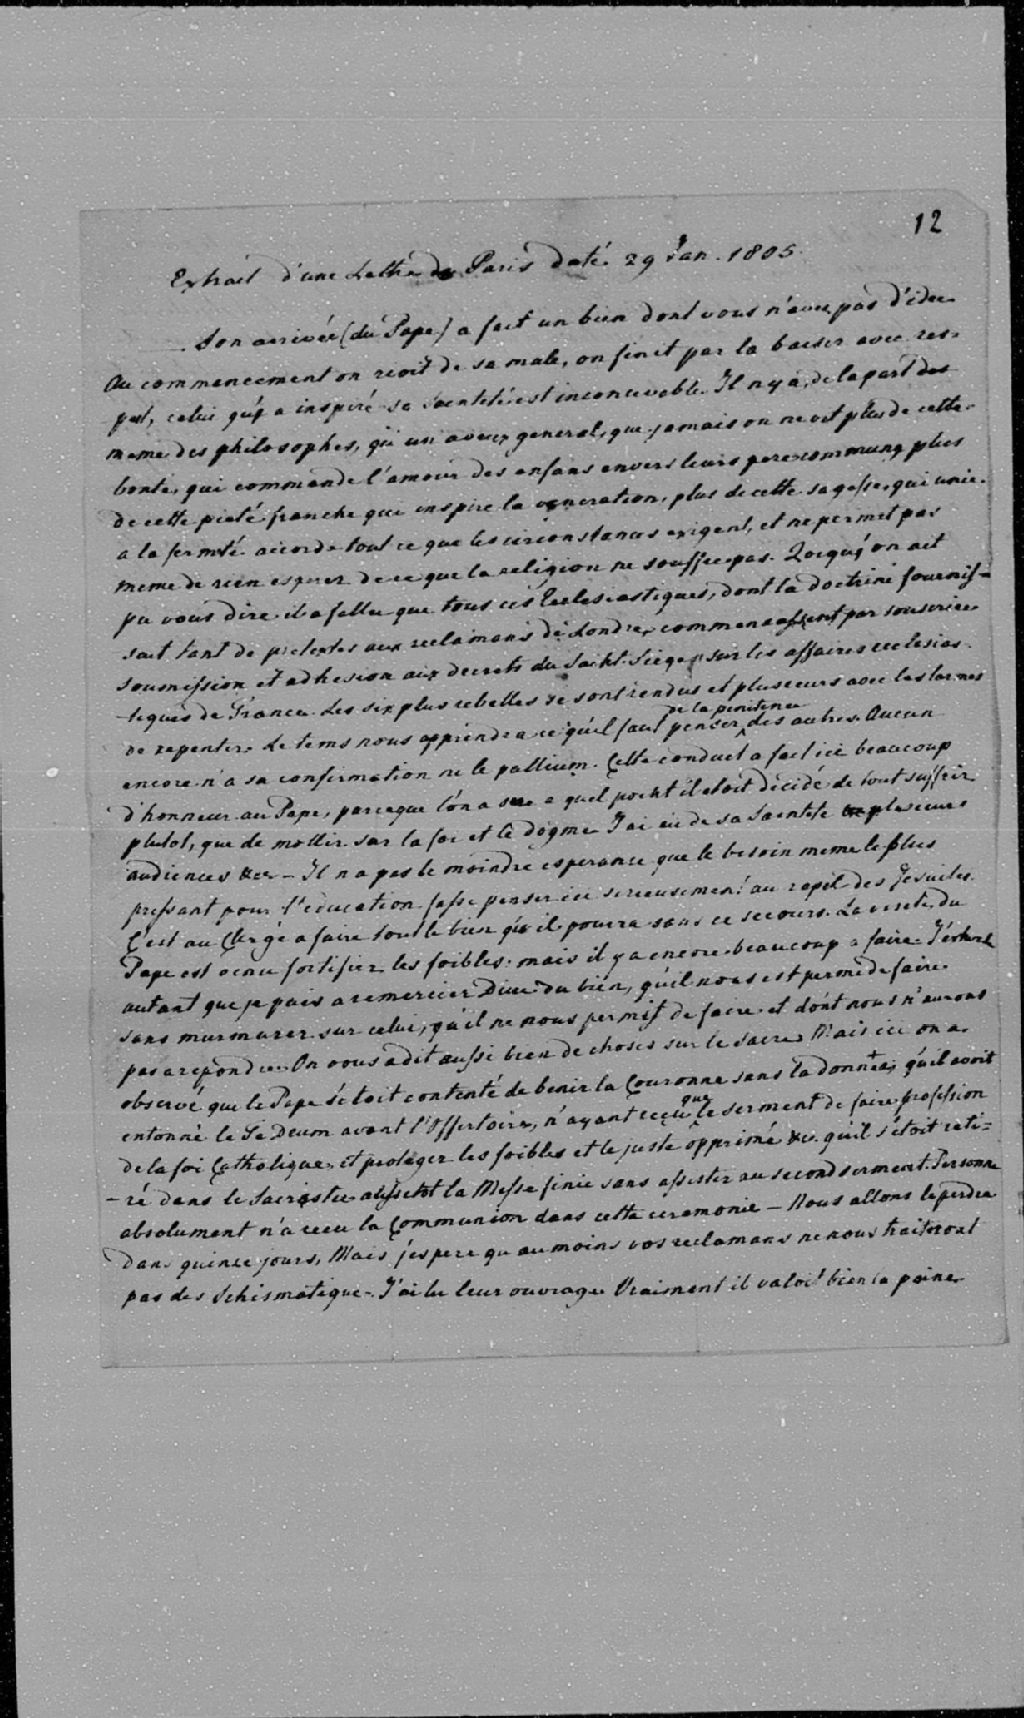 12
Extrait d'une Lettre de Paris daté 29 Jan. 1805.
Son arrivée (du Pape) a fait un bien dont vous n'avez pas d'idee
Au commencement on rioit de sa mule, on finit par la baiser avec res-
pect, celui qu'a inspiré sa Sainteté est inconcevable. Il n'y a, de la part des
meme des philosophes, qu'un aveu general, que jamais on ne vit plus de cette
bonté, qui commande l'amour des enfans envers leurs pere commung, plus
de cette pieté franche qui inspire la veneration, plus de cette sagesse, qui unie
a la fermeté accorde tout ce que les circonstances exigent, et ne permet pas
meme de rien esperer de ce que la religion ne souffre pas. Quoiqu'on ait
pu vous dire il a fallu que tous ces Ecclesiastiques, dont la doctrine fournis-
soit tant de pretextes aux reclamans de Londre, commencassent par souscrire
soumission et adhesion aux decrets du Saint Siege sur les affaires ecclesias-
tiques de France. Les six plus rebelles se sont rendus et plusieurs avec les larmes
de repentir. Le tems nous apprendra ce qu'il faut penser de la penitence des autres. Aucun
encore n'a sa confirmation ni le pallium. Cette conduit a fait ici beaucoup
d'honneur au Pape, parceque l'on a su a quel point il etoit décidé de tout suffrir
plutot, que de mollir sur la foi et le dogme J'ai eu de sa Sainteté plusieurs
audiences &c - Il n'a pas le moindre esperance que le besoin meme le plus
pressant pour l'education fasse penser ici serieusement au rapel des Jesuites.
C'est au Clergé a faire tout le bien qu'il pourra sans ce secours. La visite du
Pape est venu fortifier les foibles: mais il y a encore beaucoup a faire. J'exhorte
autant que je puis a remercier Dieu du bien, qu'il nous est permis de faire
sans murmurer sur celui, qu'il ne nous permit de faire et dont nous n'aurons
pas a repondre. On vous a dit aussi bien de choses sur le Sacre. Mais ici on a
observé que le Pape s'étoit contenté de benir la Couronne sans la donner, qu'il avoit
entonné le Te Deum avant l'Offertoire, n'ayant reçu que le serment de faire profession
de la foi Catholique, et proteger les foibles et le juste opprimé &c. qu'il s'étoit reti-
-ré dans le Sacristie aussitot la Messe finie sans assister au second serment. Personne
absolument n'a recu la Communion dans cette ceremonie - Nous allons le perdre
dans quinze jours, Mais j'espere qu au moins vos reclamans ne nous traiteront
pas des Schismatique. J'ai lu leur ouvrage Vraiment il valoit bien la peine